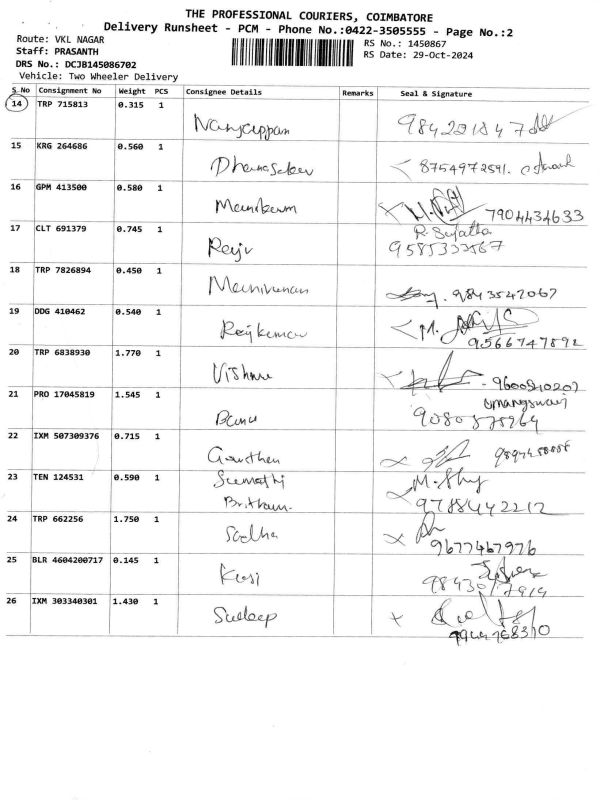 THE PROFESSIONAL COURIERS, COIMBATORE
Delivery Runsheet - PCM - Phone No.:0422-3505555 - Page No.:2
Route: VKL NAGAR
Staff: PRASANTH
DRS No.: DCJB145086702
Vehicle: Two Wheeler Delivery
RS No.: 1450867
RS Date: 29-Oct-2024
S No Consignment No Weight PCS Consignee Details Remarks Seal & Signature
14 TRP 715813 0.315 1
Nanjappan
15 KRG 264686 0.560 1
8754972591.
16 GPM 413500 0.580 1
7904434633
17 CLT 691379 0.745 1 R. Sujatha
Rajv 9585333567
18 TRP 7826894 0.450 1
9843547067
19 DDG 410462 0.540 1
Rajkumar M.
9566747892
20 TRP 6838930 1.770 1
Vishnu 9600810207
21 PRO 17045819 1.545 1
Banu
22 IXM 507309376 0.715 1
Gowthan
23 TEN 124531 0.590 1 Sumathi
9788442212
24 TRP 662256 1.750 1
Sadha 9677467976
25 BLR 4604200717 0.145 1
26 IXM 303340301 1.430 1
Sudeep